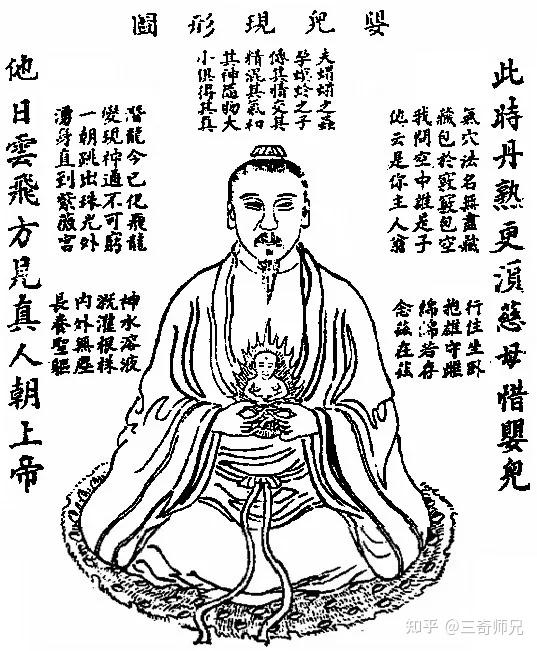 嬰兒現形圖
此時丹熟更湏慈母惜嬰兒
氣穴法名無盡藏
藏包於竅竅包空
我問空中誰是子
他云是你主人翁
行住坐臥
抱雄守雌
綿綿若存
念茲在茲
夫之蟲
孕螟蛉之子
傳其情交其
精混其氣和
其神隨物大
小俱得其真
潛龍今已化飛龍
變現神通不可窮
一朝跳出珠光外
湧身直到紫薇宮
神水溶液
溉灌根株
內外無塵
長養聖軀
他日雲飛方見真人朝上帝
知乎 @三奇师兄